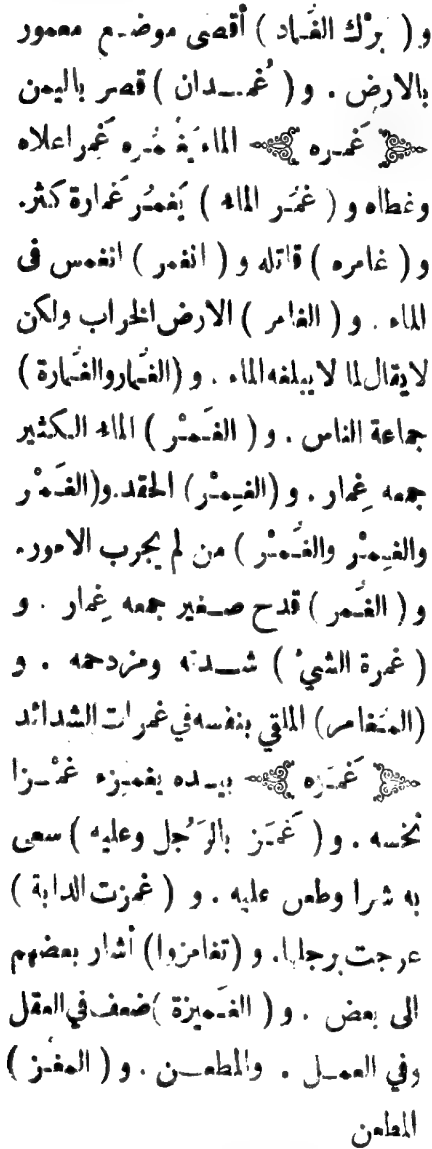 و ( بَرْك الغُماد ) أقصى موضع معمور
بالارض . و ( غُمدان ) قصر باليمن
﴿ غَمره ﴾ الماء يَغمُره غَمرا علاه
وغطاه و ( غمُر الماء ) يَغمُر غَمارة كثر.
و ( غامره ) قاتله و ( انغمر ) انغمس فى
الماء . و ( الغامر ) الارض الخراب ولكن
لايقال لما لايبلغه الماء . و (الغُمار والغُمارة )
جماعة الناس . و ( الغَمْر ) الماء الكثير
جمعه غِمار . و (الغِمْر) الحقد . و (الغَمْر
والغِمْر والغُمْر ) من لم يجرب الامور.
و ( الغُمر ) قدح صغير جمعه غِمار . و
( غمرة الشيء ) شدته ومزدحمه . و
(المُغامر) الملقي بنفسه في غمرات الشدائد
﴿ غَمَزه ﴾ بيده يغمِزه غمْزا
نخسه . و ( غَمَز بالرَجُل وعليه ) سعى
به شرا وطعن عليه . و ( غمزت الدابة )
عرجت برجلها. و (تغامزوا) أشار بعضهم
الى بعض . و ( الغَميزة ) ضعف في العقل
وفي العمل . والمطعن . و ( المغمَز )
المطعن